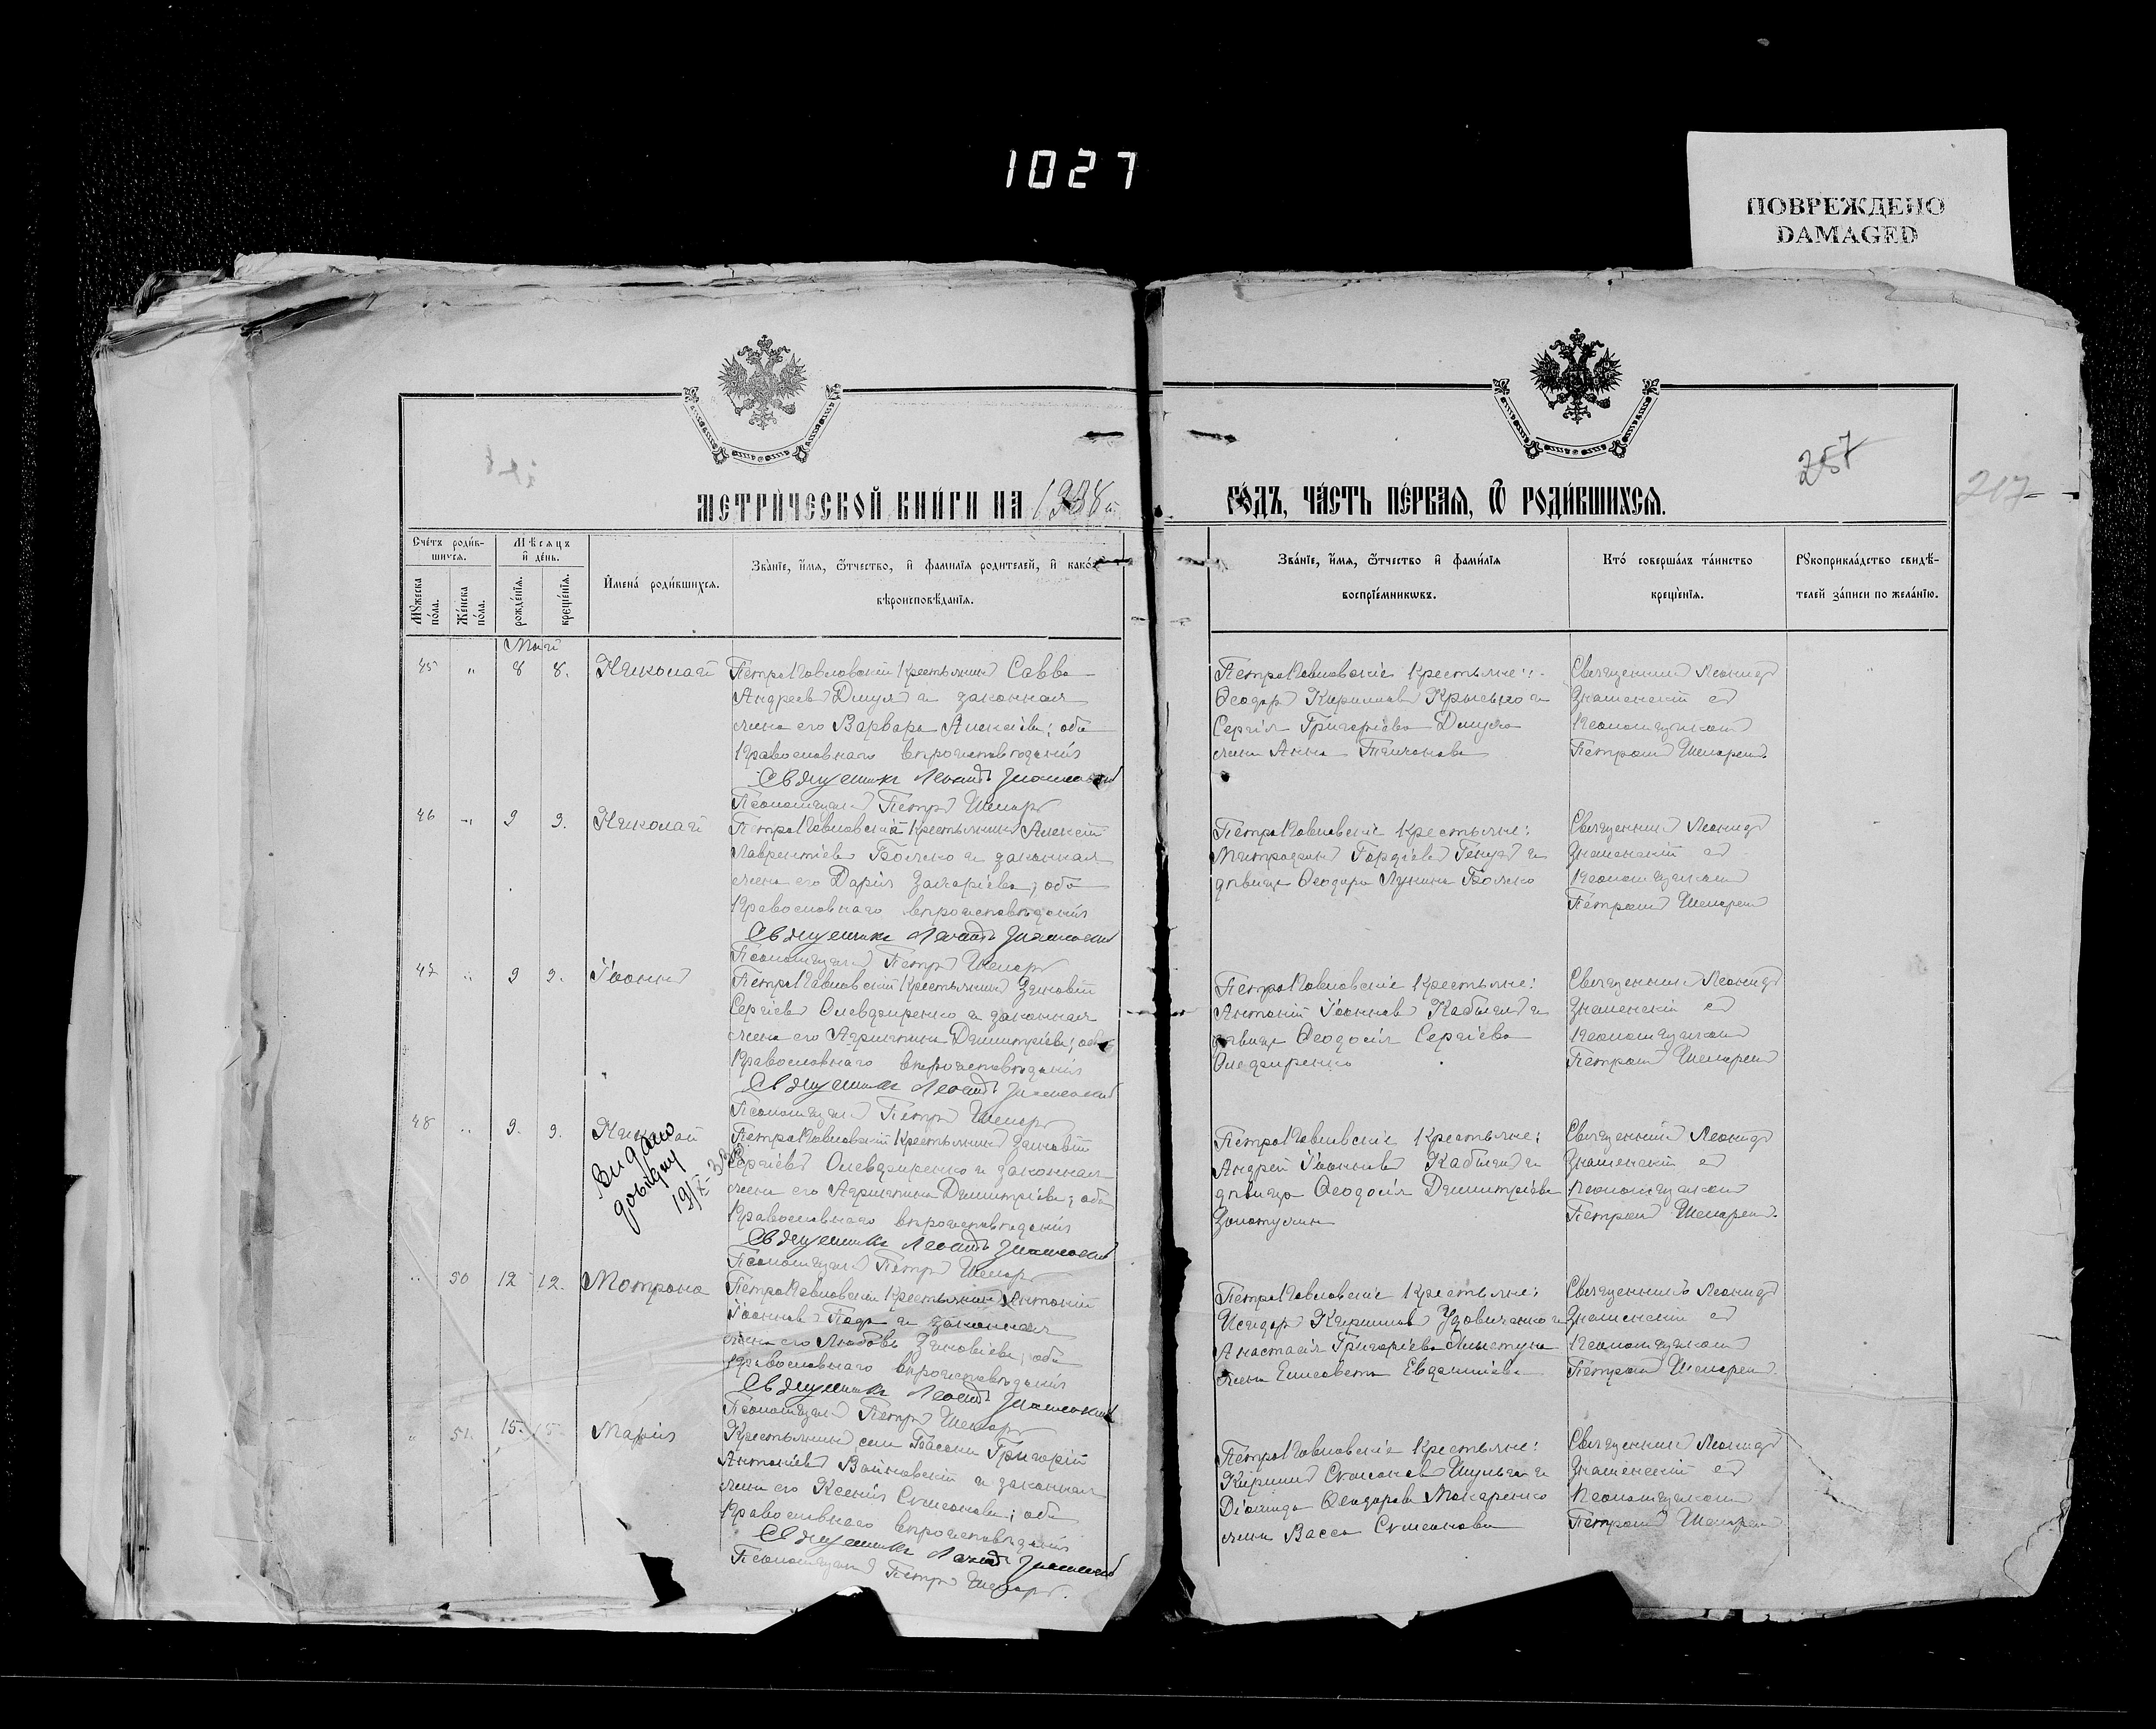 1027
ПОВРЕЖДЕНО
DAMAGED
257
217
МЕТРИ́ЧЕСКОЙ КНИ́ГИ НА
ГО́ДЪ, ЧА́СТЬ ПЕ́РВАѦ, Ѿ РОДИ́ВШИХСѦ.
Сче́тъ роди́в-
шихсѧ.
Мѣ́сѧцъ
и҆ де́нь.
Мꙋ́жеска
по́ла.
Же́нска
по́ла.
рожде́нїѧ.
креще́нїѧ.
И҆мена̀ роди́вшихсѧ.
Зва́нїе, и҆́мѧ, ѻ҆́тчество, и҆ фами́лїѧ роди́телей, и҆ како́
вѣроисповѣ́данїѧ.
Зва́нїе, и҆́мѧ, ѻ҆́тчество и҆ фами́лїѧ
воспрїе́мникѡвъ.
Кто́ соверша́лъ та́инство
креще́нїѧ.
Рꙋкоприкла́дство свидѣ́-
телей за́писи по жела́нїю.
Май
45 " 8 8. Николай
ПетроПавловскій крестьянинъ Савва
Андреевъ и законная
жена его Варвара Алексѣева; оба
Православнаго вѣроисповѣданія
Священникъ Леонидъ Знаменскій
Псаломщикъ Петръ
ПетроПавловскіе крестьяне:
Ѳеодоръ Кирилловъ и
Сергія Григоріева
жена Анна
Священникъ Леонидъ
Знаменскій съ
Псаломщикомъ
Петромъ
46 " 9 9. Николай
ПетроПавловскій крестьянинъ Алексѣй
Лаврентіевъ Божко и законная
жена его Дарія Захаріева; оба
Православнаго вѣроисповѣданія
Священникъ Леонидъ Знаменскій
Псаломщикъ Петръ
ПетроПавловскіе крестьяне:
Митрофанъ Гордѣевъ и
дѣвица Ѳеодора Лукина Божко
Священникъ Леонидъ
Знаменскій съ
Псаломщикомъ
Петромъ
47 " 9 9. Іоаннъ
ПетроПавловскій крестьянинъ Зиновій
Сергіевъ Олефиренко и законная
жена его Агрипина Димитріева; оба
Православнаго вѣроисповѣданія
Священникъ Леонидъ Знаменскій
Псаломщикъ Петръ
ПетроПавловскіе крестьяне:
Антоній Іоанновъ и
дѣвица Ѳеодосія Сергіева
Олефиренко
Священникъ Леонидъ
Знаменскій съ
Псаломщикомъ
Петромъ
48 " 9. 9. Николай
Видано
довідку
ПетроПавловскій крестьянинъ Зиновій
Сергіевъ Олефиренко и законная
жена его Агрипина Димитріева; оба
Православнаго вѣроисповѣданія
Священникъ Леонидъ Знаменскій
Псаломщикъ Петръ
ПетроПавловскіе крестьяне:
Андрей Іоанновъ и
дѣвица Ѳеодосія Димитріева
Священникъ Леонидъ
Знаменскій съ
Псаломщикомъ
Петромъ
" 50 12 12. Мотрона
ПетроПавловскій крестьянинъ Антоній
Іоанновъ и законная
жена его Любовь Зиновіева; оба
Православнаго вѣроисповѣданія
Священникъ Леонидъ Знаменскій
Псаломщикъ Петръ
ПетроПавловскіе крестьяне:
Исидоръ Кирилловъ Удовиченко и
Анастасія Григоріева
жена Елисавета
Священникъ Леонидъ
Знаменскій съ
Псаломщикомъ
Петромъ
" 51. 15. 15. Марія
Крестьянинъ села Григорій
Антоніевъ и законная
жена его Ксенія Симеонова; оба
Православнаго вѣроисповѣданія
Священникъ Леонидъ Знаменскій
Псаломщикъ Петръ
ПетроПавловскіе крестьяне:
Кириллъ Симеоновъ Шульга и
Діомида Ѳеодорова Макаренко
жена Васса Симеонова
Священникъ Леонидъ
Знаменскій съ
Псаломщикомъ
Петромъ